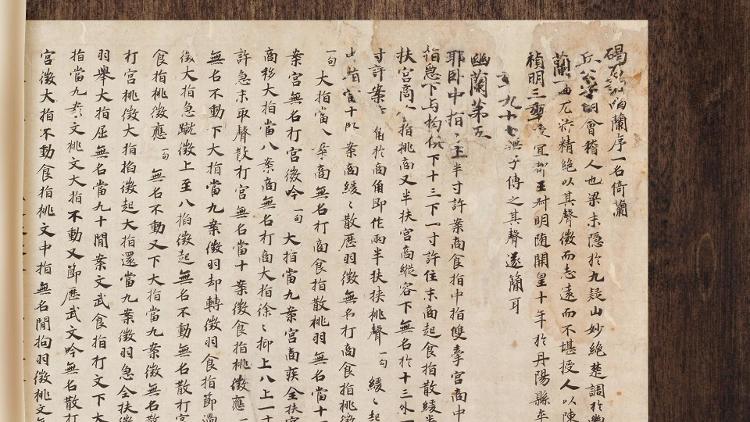 碣石調幽蘭序一名倚蘭
丘公字明會稽人也梁末隱於九疑山妙絕楚調於幽
蘭一曲尤特精絕以其聲微而志遠而不堪授人以陳
禎明三年授宜都王叔明隨開皇十年於丹陽縣卒
九十七無子傳之其聲遂簡耳
幽蘭第五
耶臥中指上半寸許案商食指中指雙牽宮商中
指急下与拘俱下十三下一寸許住末商起食指散緩半
扶宮商食指挑商又半扶宮商縱容下無名於十三外一
寸許案商角於商角即作兩半扶挾挑聲一句緩〻起
宮案商緩〻散歷羽徵無名打商食指挑徵
一句大指當八案商無名打商食指散挑羽無名當十
案宮無名打宮徵吟一句大指當九案宮商疾全扶宮
商移大指當八案商無名打商大指徐〻抑上八上一寸
許急末取聲散打宮無名當十案徵食指挑徵應一
無名不動下大指當九案徵羽却轉徵羽食指節過
徵大指急蹴徵上至八掐徵起無名不動無名散打宮
食指挑徵應一句無名不動又下大指當九案徵無名散
打宮挑徵大指掐徵起大指還當九案徵羽急全扶徵
羽舉大指屈無名當九十間案文武食指打文下大
指當九案文挑文大指不動又節歷武文吟無名散打
宮徵大指不動食指挑文中指無名間拘羽徵挑文無